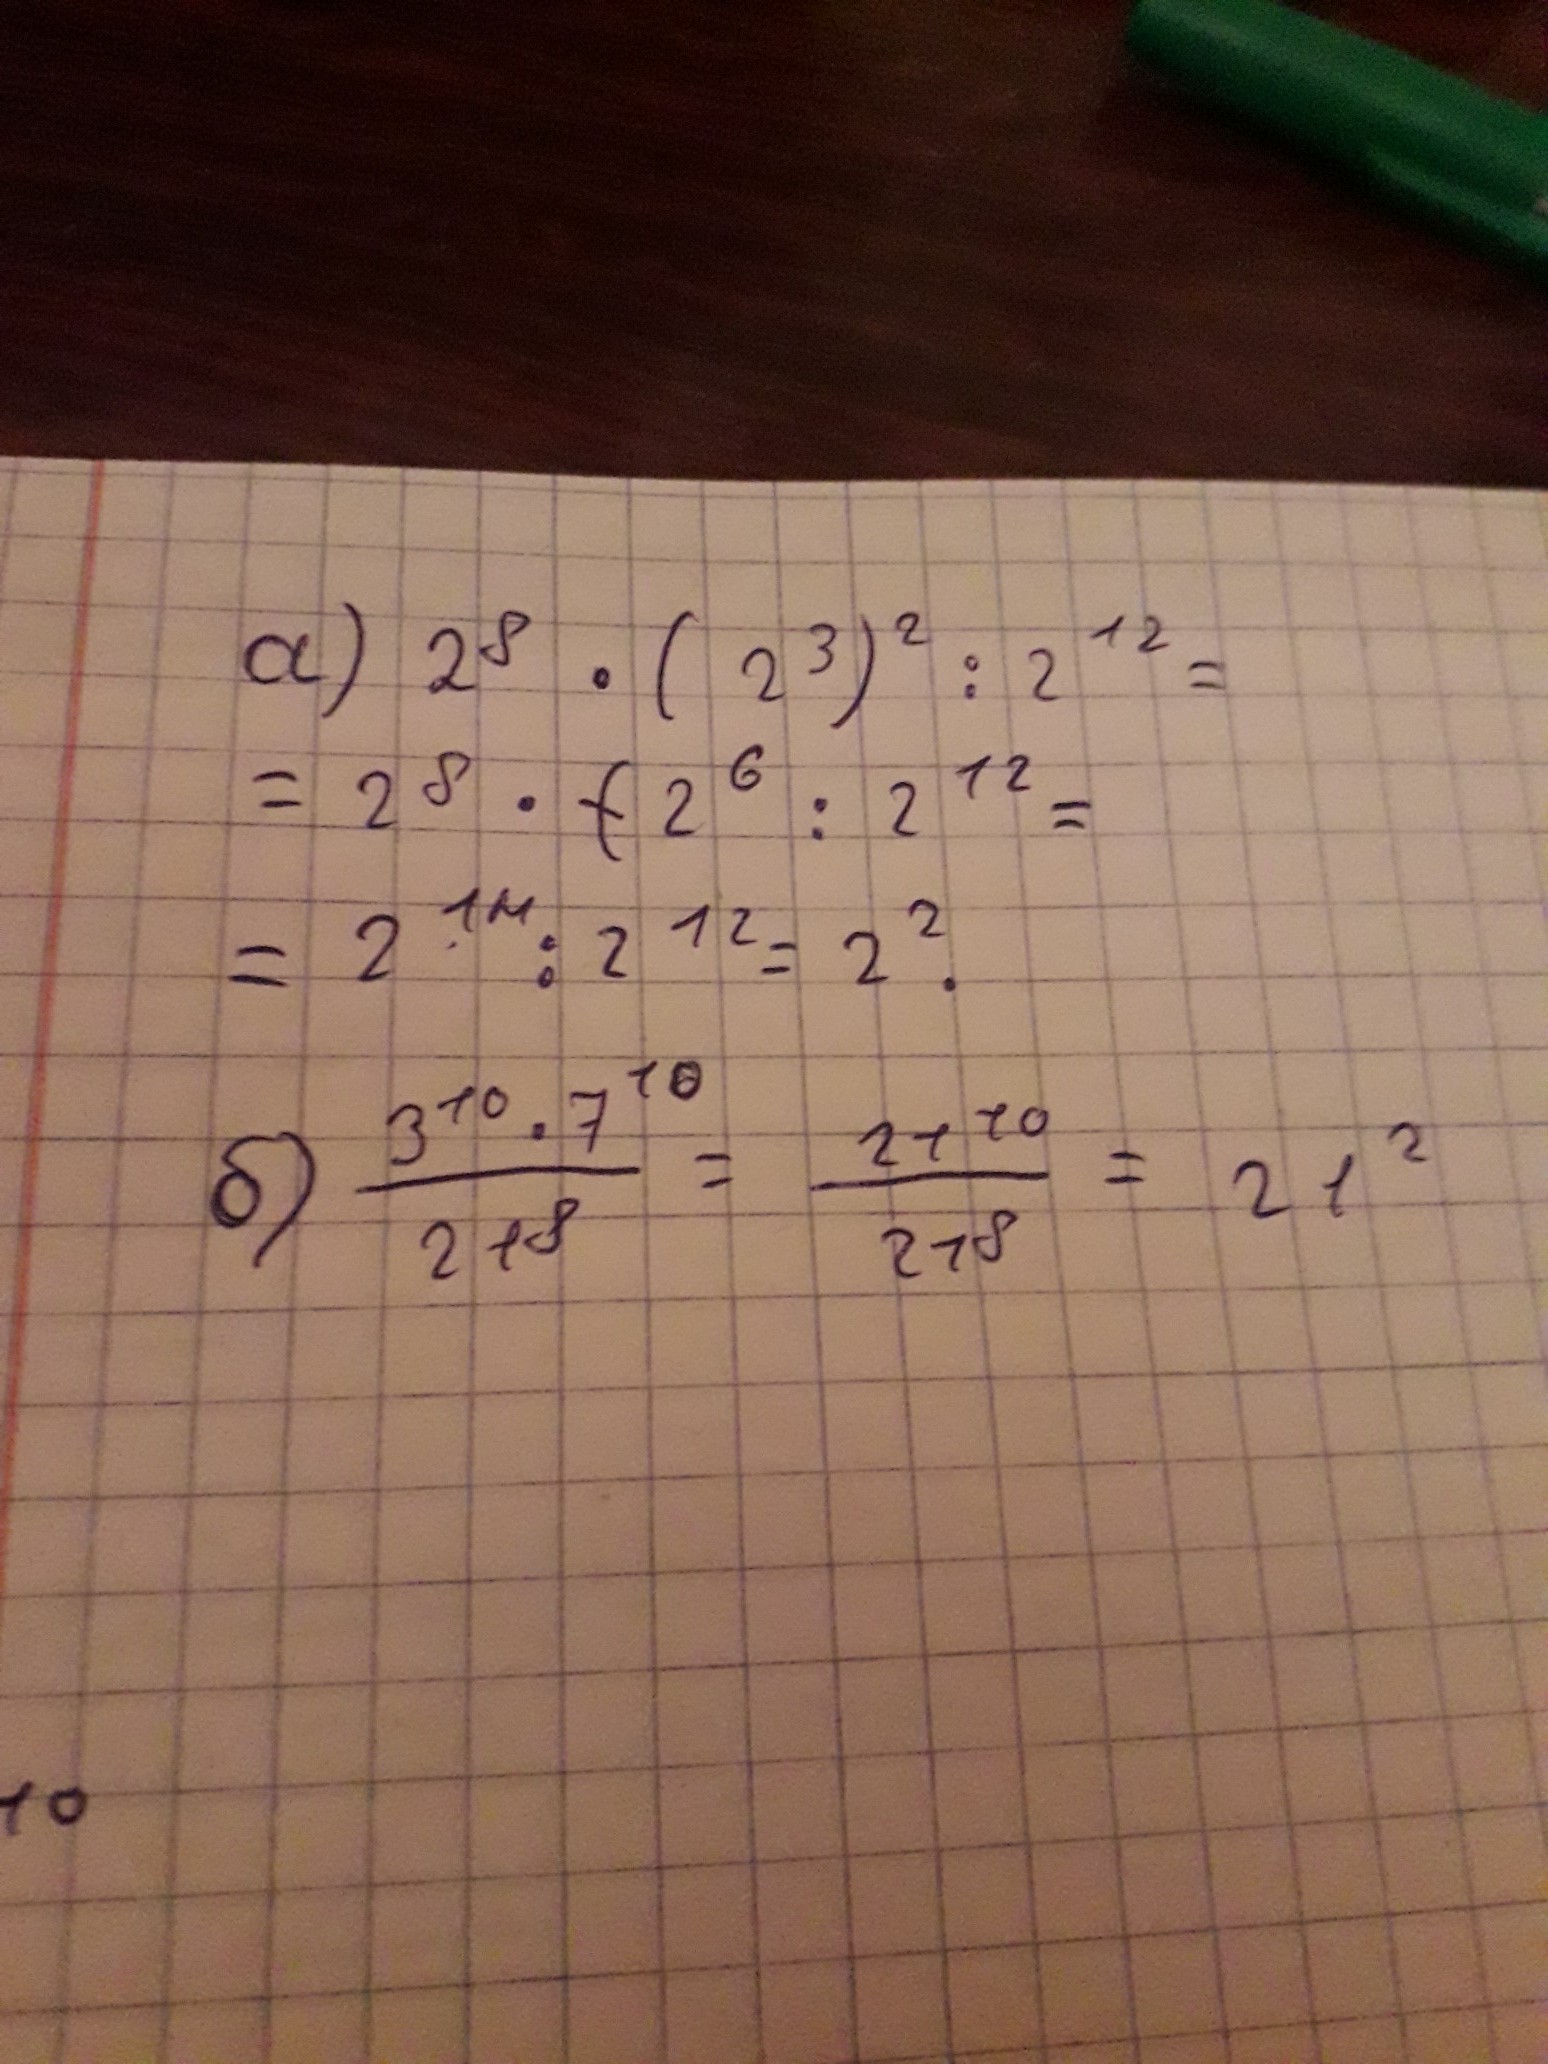 а) 2⁸ · (2³)² : 2¹² =
= 2⁸ · 2⁶ : 2¹² =
= 2¹⁴ : 2¹² = 2².
б) (3¹⁰ · 7¹⁰)/(21⁸) = (21¹⁰)/(21⁸) = 21²
10